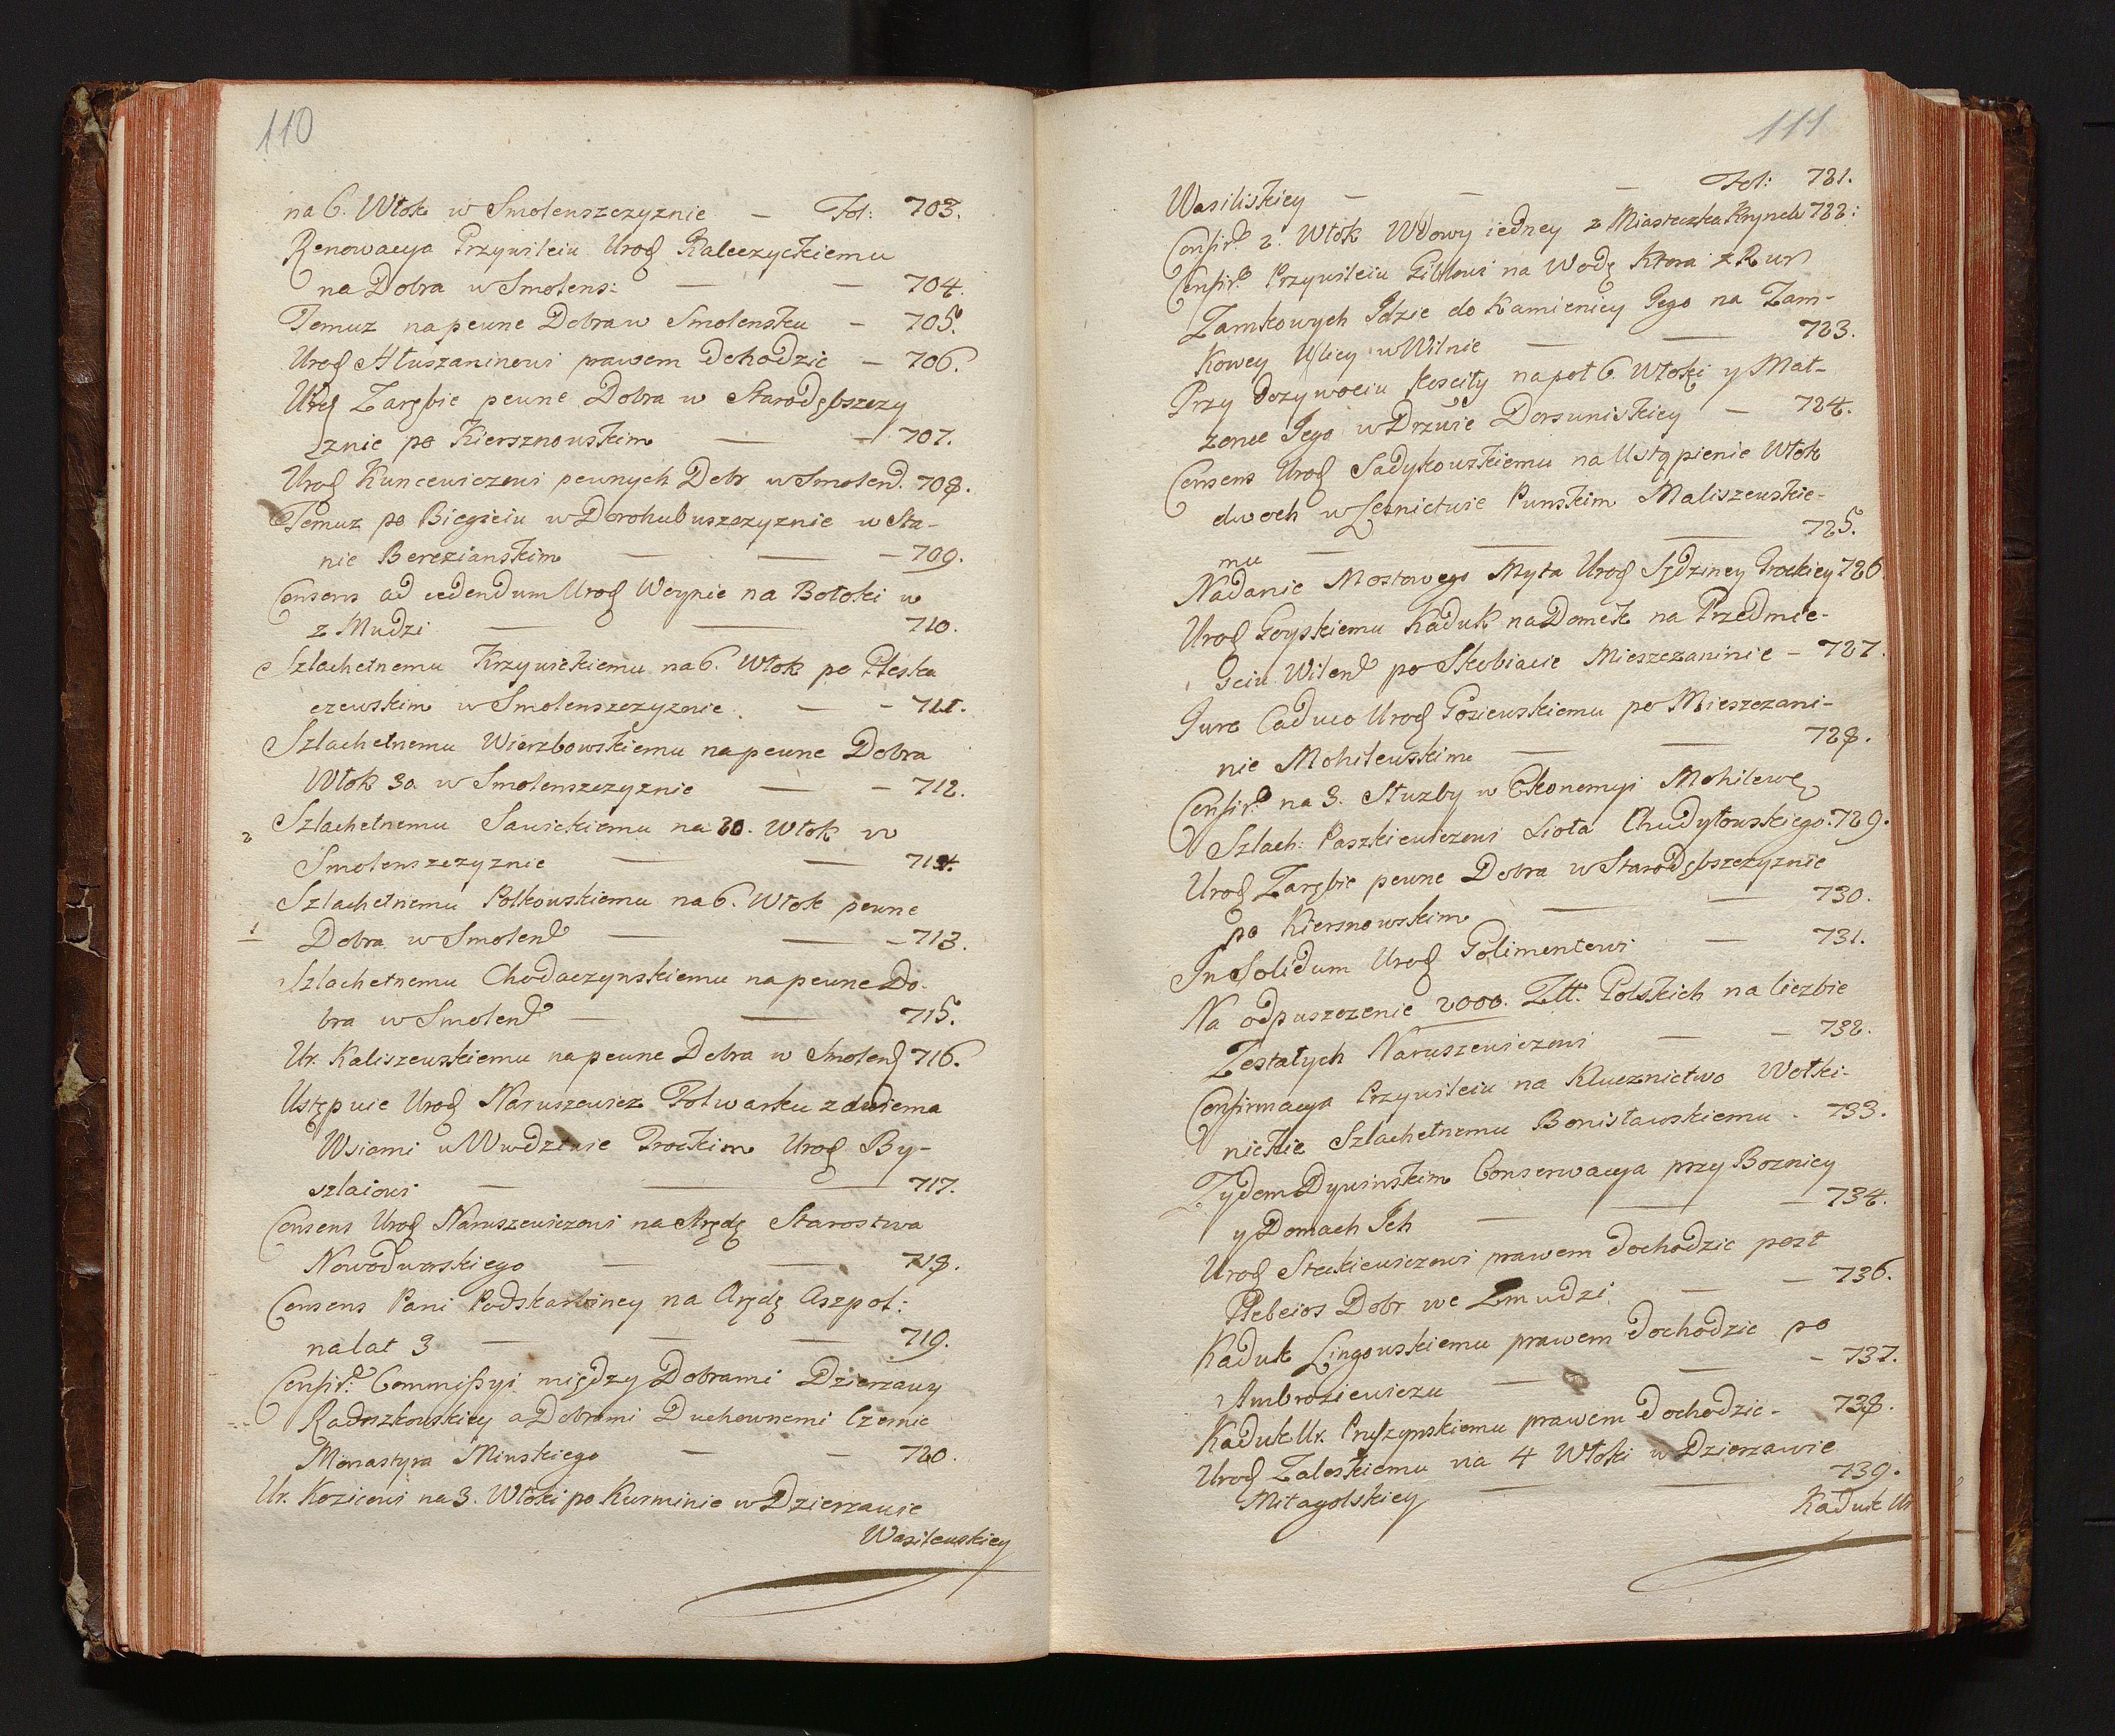 110
na 6. Włok w Smolenszczyznie — Fol: 703.
Renowacya Przywileiu Urod Kaleczyckiemu
na Dobra w Smolens: — — 704.
Temuz na pewne Dobra w Smolensku — 705.
Urod Hłuszaninowi prawem dochodzic — 706.
Urod Zarębie pewne Dobra w Starodębszczy
znie po Kiersznowskim — — 707.
Urod Kuncewiczowi pewnych Dobr w Smolend. 708.
Temuz po Biegieiu w Dorohubuszczyznie w Sta-
nie Berezianskim — — — 709.
Consens ad cedendum Urod Woynie na Bołoki w
z Mudzi — — 710.
Szlachetnemu Krzywickiemu na 6. Włok po Pleska
czewskim w Smolenszczyznie. — — 711.
Szlachetnemu Wierzbowskiemu na pewne Dobra
Włok 30 w Smolenszczyznie — — 712.
2 Szlachetnemu Sawickiemu na 20. Włok w
Smolenszczyznie — — 714.
Szlachetnemu Polkowskiemu na 6. Włok pewne
1 Dobra w Smolend — — — 713.
Szlachetnemu Chodaczynskiemu na pewne Do-
bra w Smolend — — 715.
Ur. Kaliszewskiemu na pewne Dobra w Smolend 716.
Ustępuie Urod Naruszewicz Folwarku z dwiema
Wsiami w Wwdztwie Trockim Urod By-
szlaiowi — — — 717.
Consens Urod Naruszewiczowi na Arędę Starostwa
Nowodworskiego — — 718.
Consens Pani Podskarbiney na Arędę Aszpol:
na lat 3 — — — 719.
Confir: Commissyi między Dobrami Dzierzawy
Radoszkowskiey a Dobrami Duchownemi Czernic
Monastyra Minskiego — — 720.
Ur. Kozicowi na 3. Włoki po Kurminie w Dzierzawie
Wasilewskiey
111
Wasiliskiey — — — Fol: 721.
Confir: 2. Włok Wdowy iedney z Miasteczka Krynek 722:
Confir: Przywileiu Giblowi na Wodę Ktora z Rur
Zamkowych Idzie do Kamienicy Jego na Zam-
kowey Ulicy w Wilnie — — 723.
Przy dozywociu Kosciły na poł 6. Włoki y Mał-
zonce Jego w Drzwie Dorsuniskiey — 724.
Consens Urod Sadykowskiemu na Ustąpienie Włok
dwoch w Lesnictwie Punskim Maliszewskie-
mu — — — 725.
Nadanie Mostowego Myta Urod Sędziney Trockiey 726
Urod Goyskiemu Kaduk na Domek na Przedmie-
sciu Wilend po Skobiacie Mieszczaninie — 727.
Jure Caduco Urod Gosiewskiemu po Mieszczani-
nie Mohilewskim — — 728.
Confir: na 3. Służby w Ekonomyi Mohilewę
Szlach: Paszkiewiczowi Sioła Chudyłowskiego. 729.
Urod Zarębie pewne Dobra w Starodębszczyznie
po Kiersnowskim — — 730.
In Solidum Urod Golimentowi — 731.
Na odpuszczenie 2000. Złł. Polskich na liczbie
Zestałych Naruszewiczowi — — 732.
Confirmacya Przywileiu na Klucznictwo Wołki-
nickie Szlachetnemu Bonisławskiemu - 733.
Zydom Dywinskim Conserwacya przy Boznicy
y Domach Ich — — — 734.
Urod Steckiewiczowi prawem dochodzic post
Plebeios Dobr we Zmudzi — — 736.
Kaduk Lingowskiemu prawem dochodzic po
Ambroziewiczu — — — 737.
Kaduk Ur. Pruszynskiemu prawem dochodzic - 738.
Urod Zaleskiemu na 4 Włoki w Dzierzawie
Mitagolskiey — — 739.
Kaduk Ur